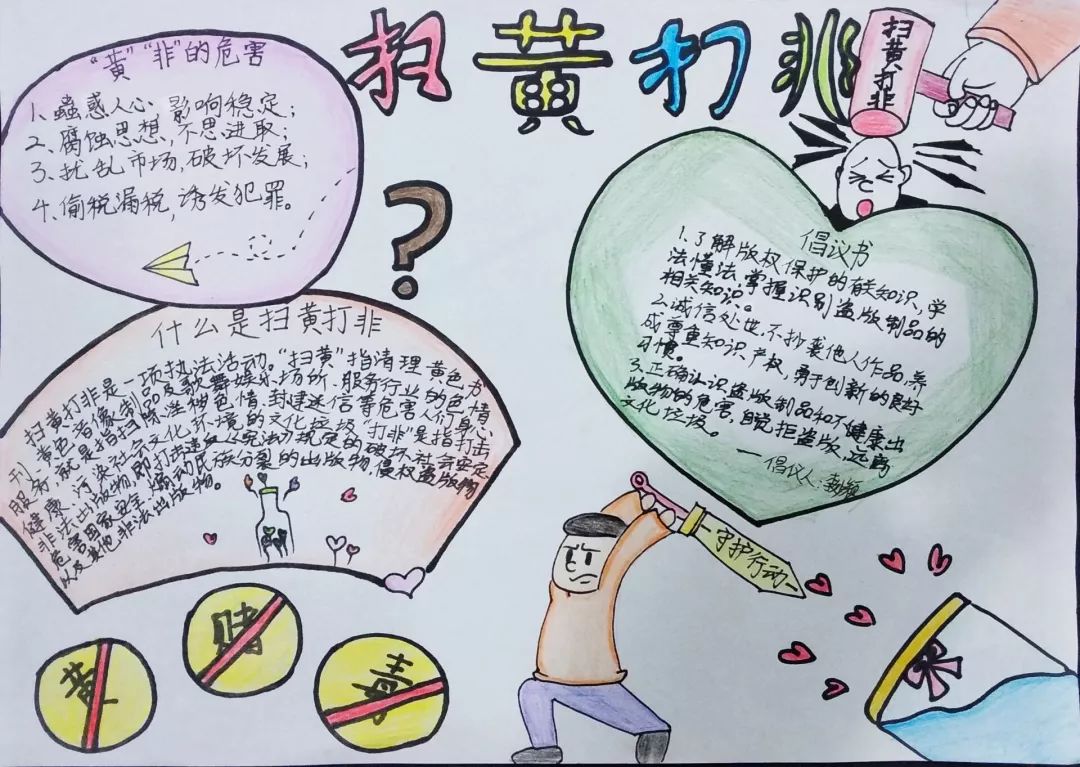 扫黄打非
扫黄打非
"黄" "非"的危害
1、蛊惑人心,影响稳定;
2、腐蚀思想,不思进取;
3、扰乱市场,破坏发展;
4、偷税漏税,诱发犯罪。
?
什么是扫黄打非
扫黄打非是一项执法活动。"扫黄"指清理黄色书
刊、黄色音像制品及歌舞娱乐场所、服务行业的色情
服务,就是指扫除淫秽色情、封建迷信等危害人们身心
健康、污染社会文化环境的文化垃圾。"打非"是指打击
非法出版物,即打击违反《宪法》规定的破坏社会安定
危害国家安全、煽动民族分裂的出版物,侵权盗版出版物
以及其他非法出版物。
倡议书
1.了解版权保护的有关知识,学
法懂法,掌握识别盗版制品的
相关知识。
2.诚信处世,不抄袭他人作品,养
成尊重知识产权、勇于创新的良好
习惯。
3.正确认识盗版制品和不健康出
版物的危害,自觉拒盗版,远离
文化垃圾。
—倡仪人:
守护行动
黄
赌
毒